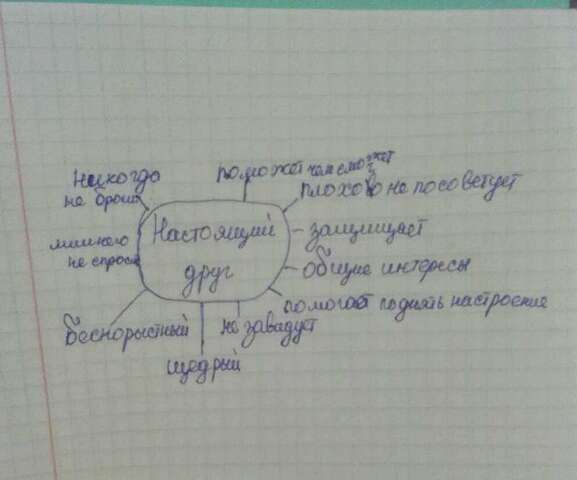 Настоящий
друг
никогда
не броша
поможет чем сможет
плохого не посоветует
защищает
общие интересы
помогает поднять настроение
не завадует
щедрый
бескорыстный
лишнего
не спроси